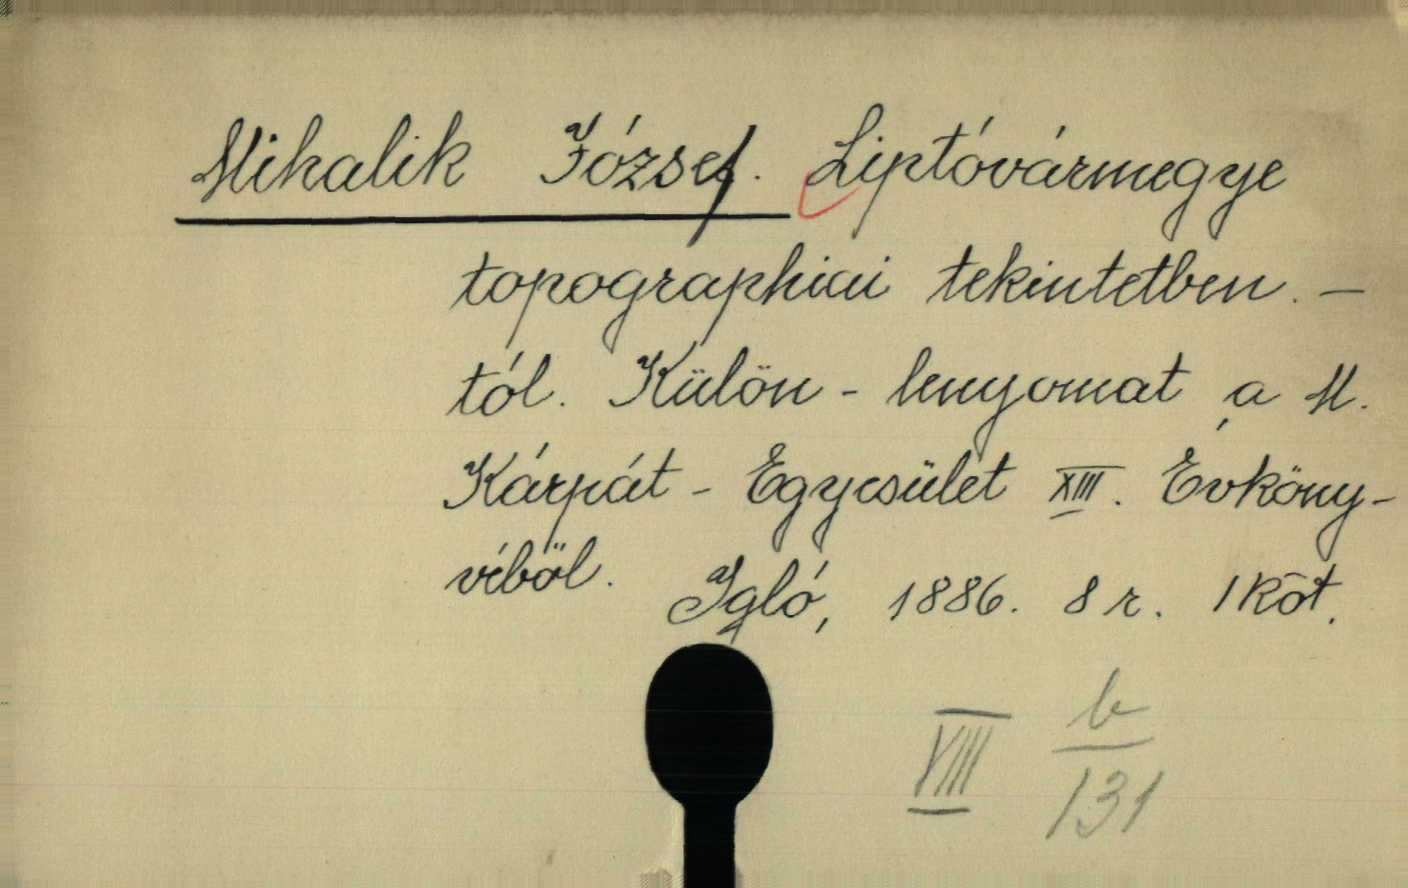 Mihalik József. Liptóvármegye
topographiai tekintetben. —
tól. Külön - lenyomat a M.
Kárpát - Egyesület XIII. Évköny-
véből. Igló, 1886. 8 r. 1 köt.
VIII b/131